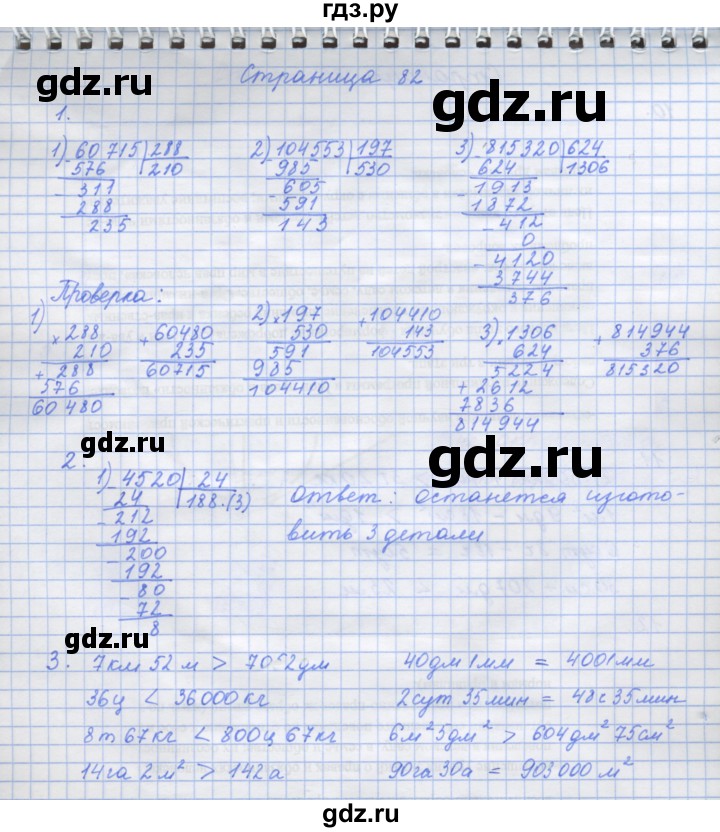 гдз.ру
gdz.ru
gdz.ru
Страница 82
1.
1) 60715 | 288
576 | 210
311
288
235
2) 104553 | 197
985 | 530
605
591
143
3) 815320 | 624
624 | 1306
1913
1872
412
0
4120
3744
376
gdz.ru
Проверка:
1) × 288
210
+ 288
576
60480
+ 60480
235
60715
2) × 197
530
591
985
104410
+ 104410
143
104553
3) × 1306
624
5224
+ 2612
7836
814944
+ 814944
376
815320
gdz.ru
gdz.ru
2.
1) 4520 | 24
24 | 188.(3)
212
192
200
192
80
72
8
Ответ: останется изгото-
вить 3 детали
gdz.ru
3. 7км 52м > 70 2 дм
40дм 1мм = 4001мм
36ц < 36000кг
2сут 35мин = 48с 35мин
8т 67кг < 800ц 67кг
6м² 5дм² > 604дм² 75см²
14га 2м² > 142а
90га 30а = 903000м²
gdz.ru
gdz.ru
gdz.ru